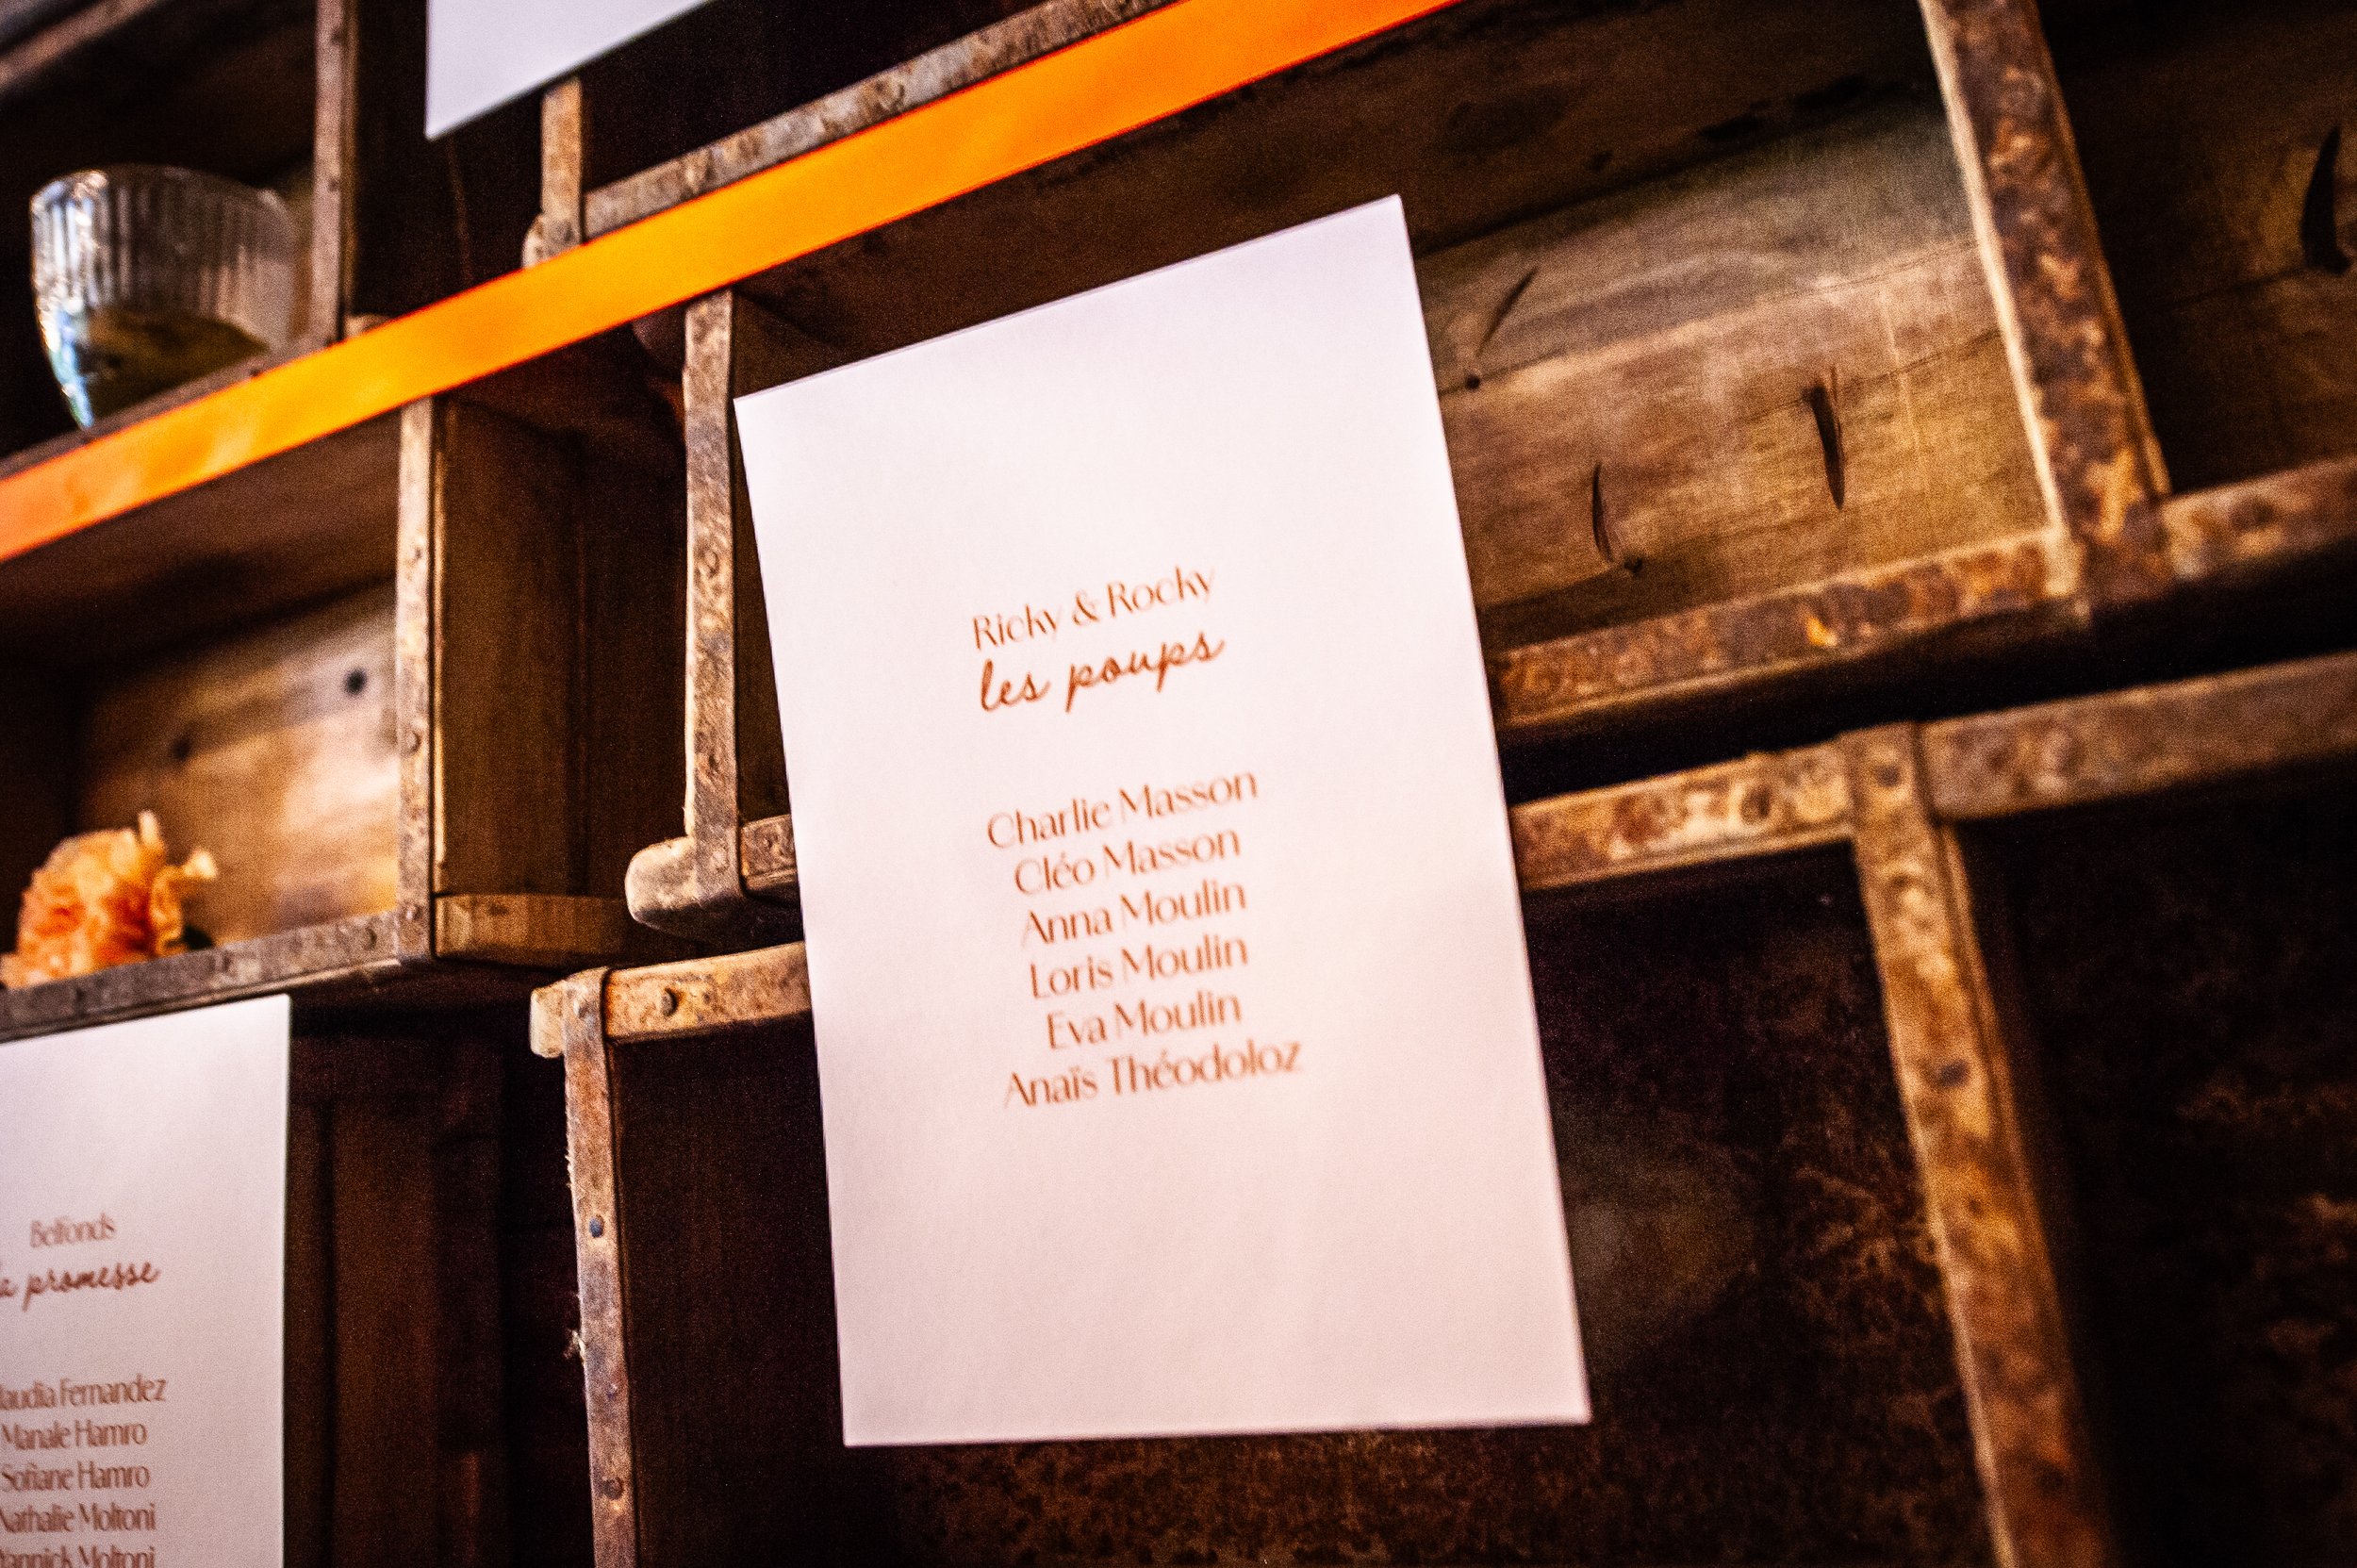 Ricky & Rocky
les poups
Charlie Masson
Cléo Masson
Anna Moulin
Loris Moulin
Eva Moulin
Anaïs Théodoloz
Belfonds
promesse
Fernandez
Manale Hamro
Sofiane Hamro
Nathalie Moltoni
Yannick Moltoni